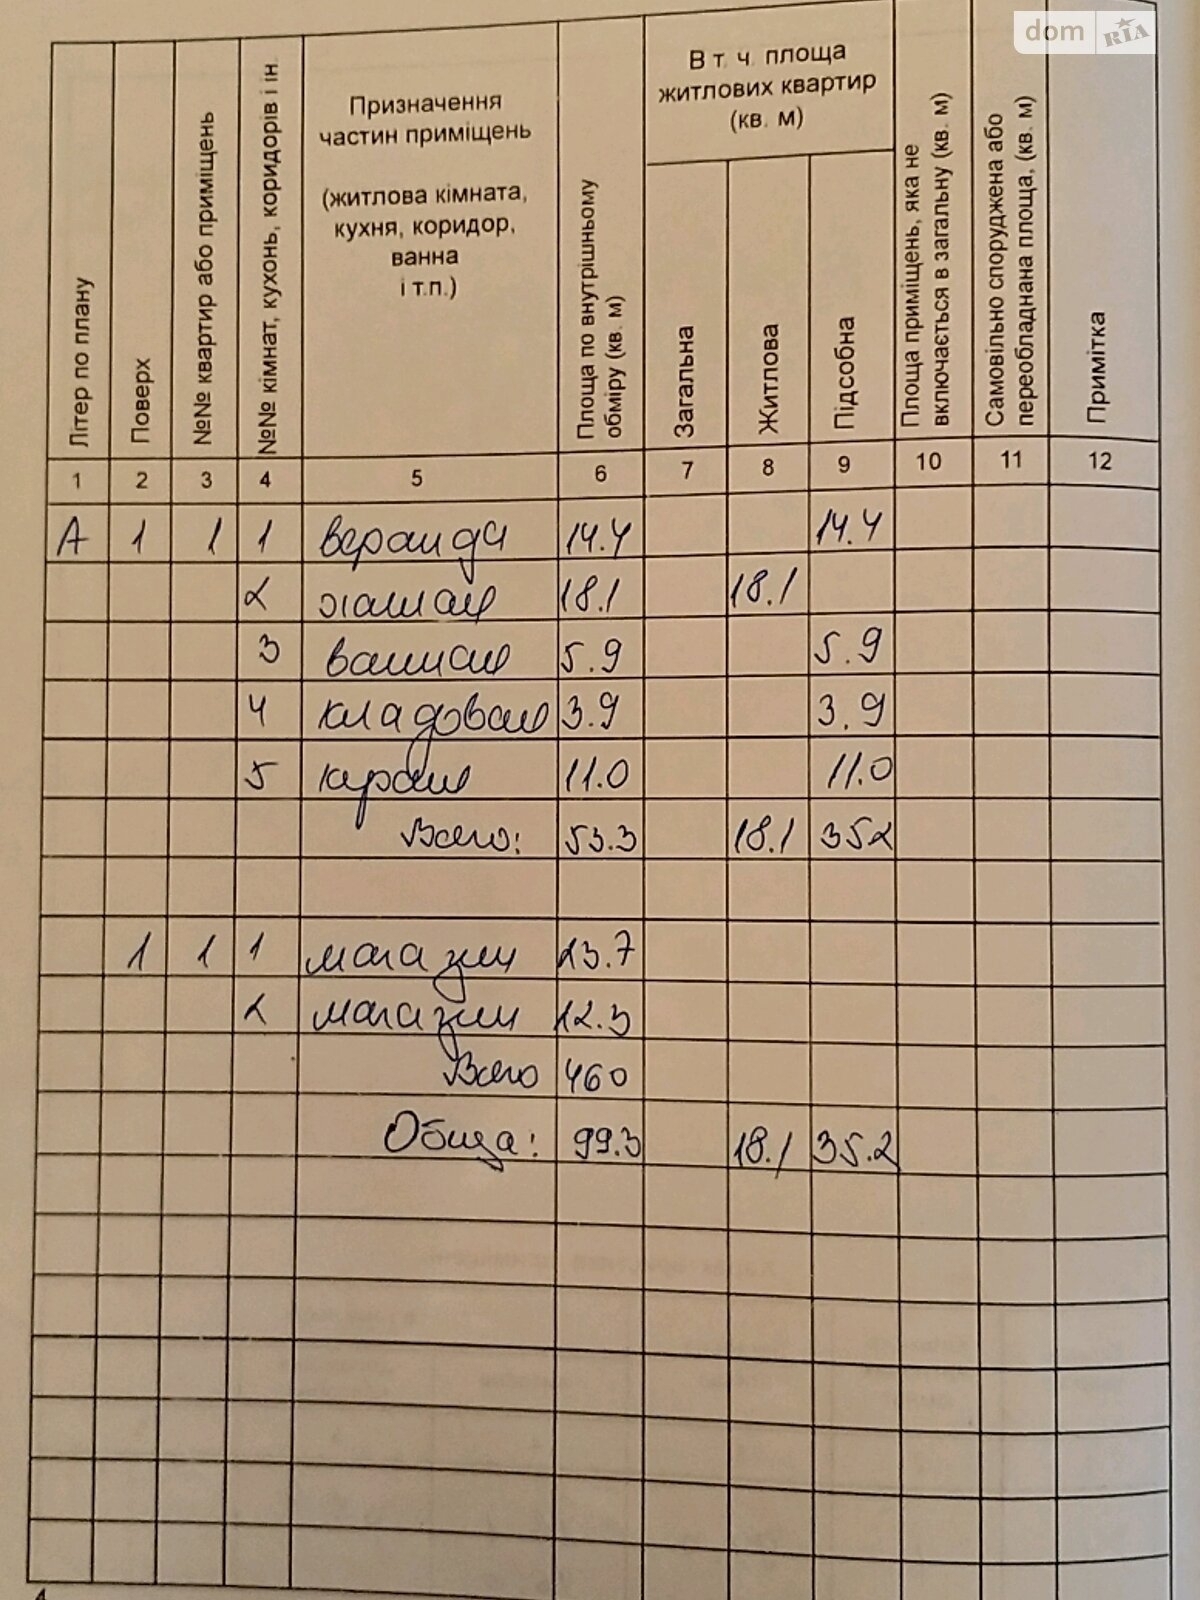 dom RIA
Літер по плану
Поверх
№№ квартир або приміщень
№№ кімнат, кухонь, коридорів і ін.
Призначення
частин приміщень
(житлова кімната,
кухня, коридор,
ванна
і т.п.)
Площа по внутрішньому
обміру (кв. м)
В т. ч. площа
житлових квартир
(кв. м)
Загальна
Житлова
Підсобна
Площа приміщень, яка не
включається в загальну (кв. м)
Самовільно споруджена або
переобладнана площа, (кв. м)
Примітка
1 2 3 4 5 6 7 8 9 10 11 12
А 1 1 1 веранда 14.4 14.4
2 18.1 18.1
3 ванная 5.9 5.9
4 кладовая 3.9 3.9
5 11.0 11.0
Всего: 53.3 18.1 352
1 1 1 магазин 23.7
2 магазин 12.3
Всего 460
Общая: 99.3 18.1 35.2
4